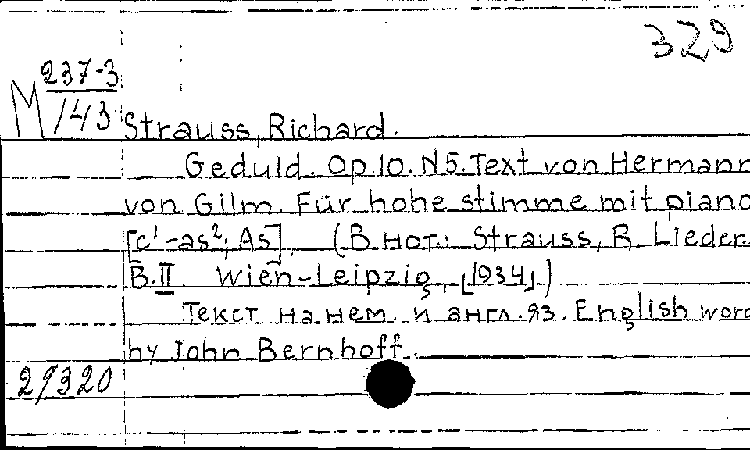 329
M 237-3/143
Strauss, Richard.
Geduld. Op.10. N5. Text von Hermann
von Gilm. Für hohe stimme mit piano
[c¹-as², As]. (В нот.: Strauss, R. Lieder.
B. II. Wien-Leipzig, [1934])
Текст на нем. и англ. яз. English word
by John Bernhoff.
29320